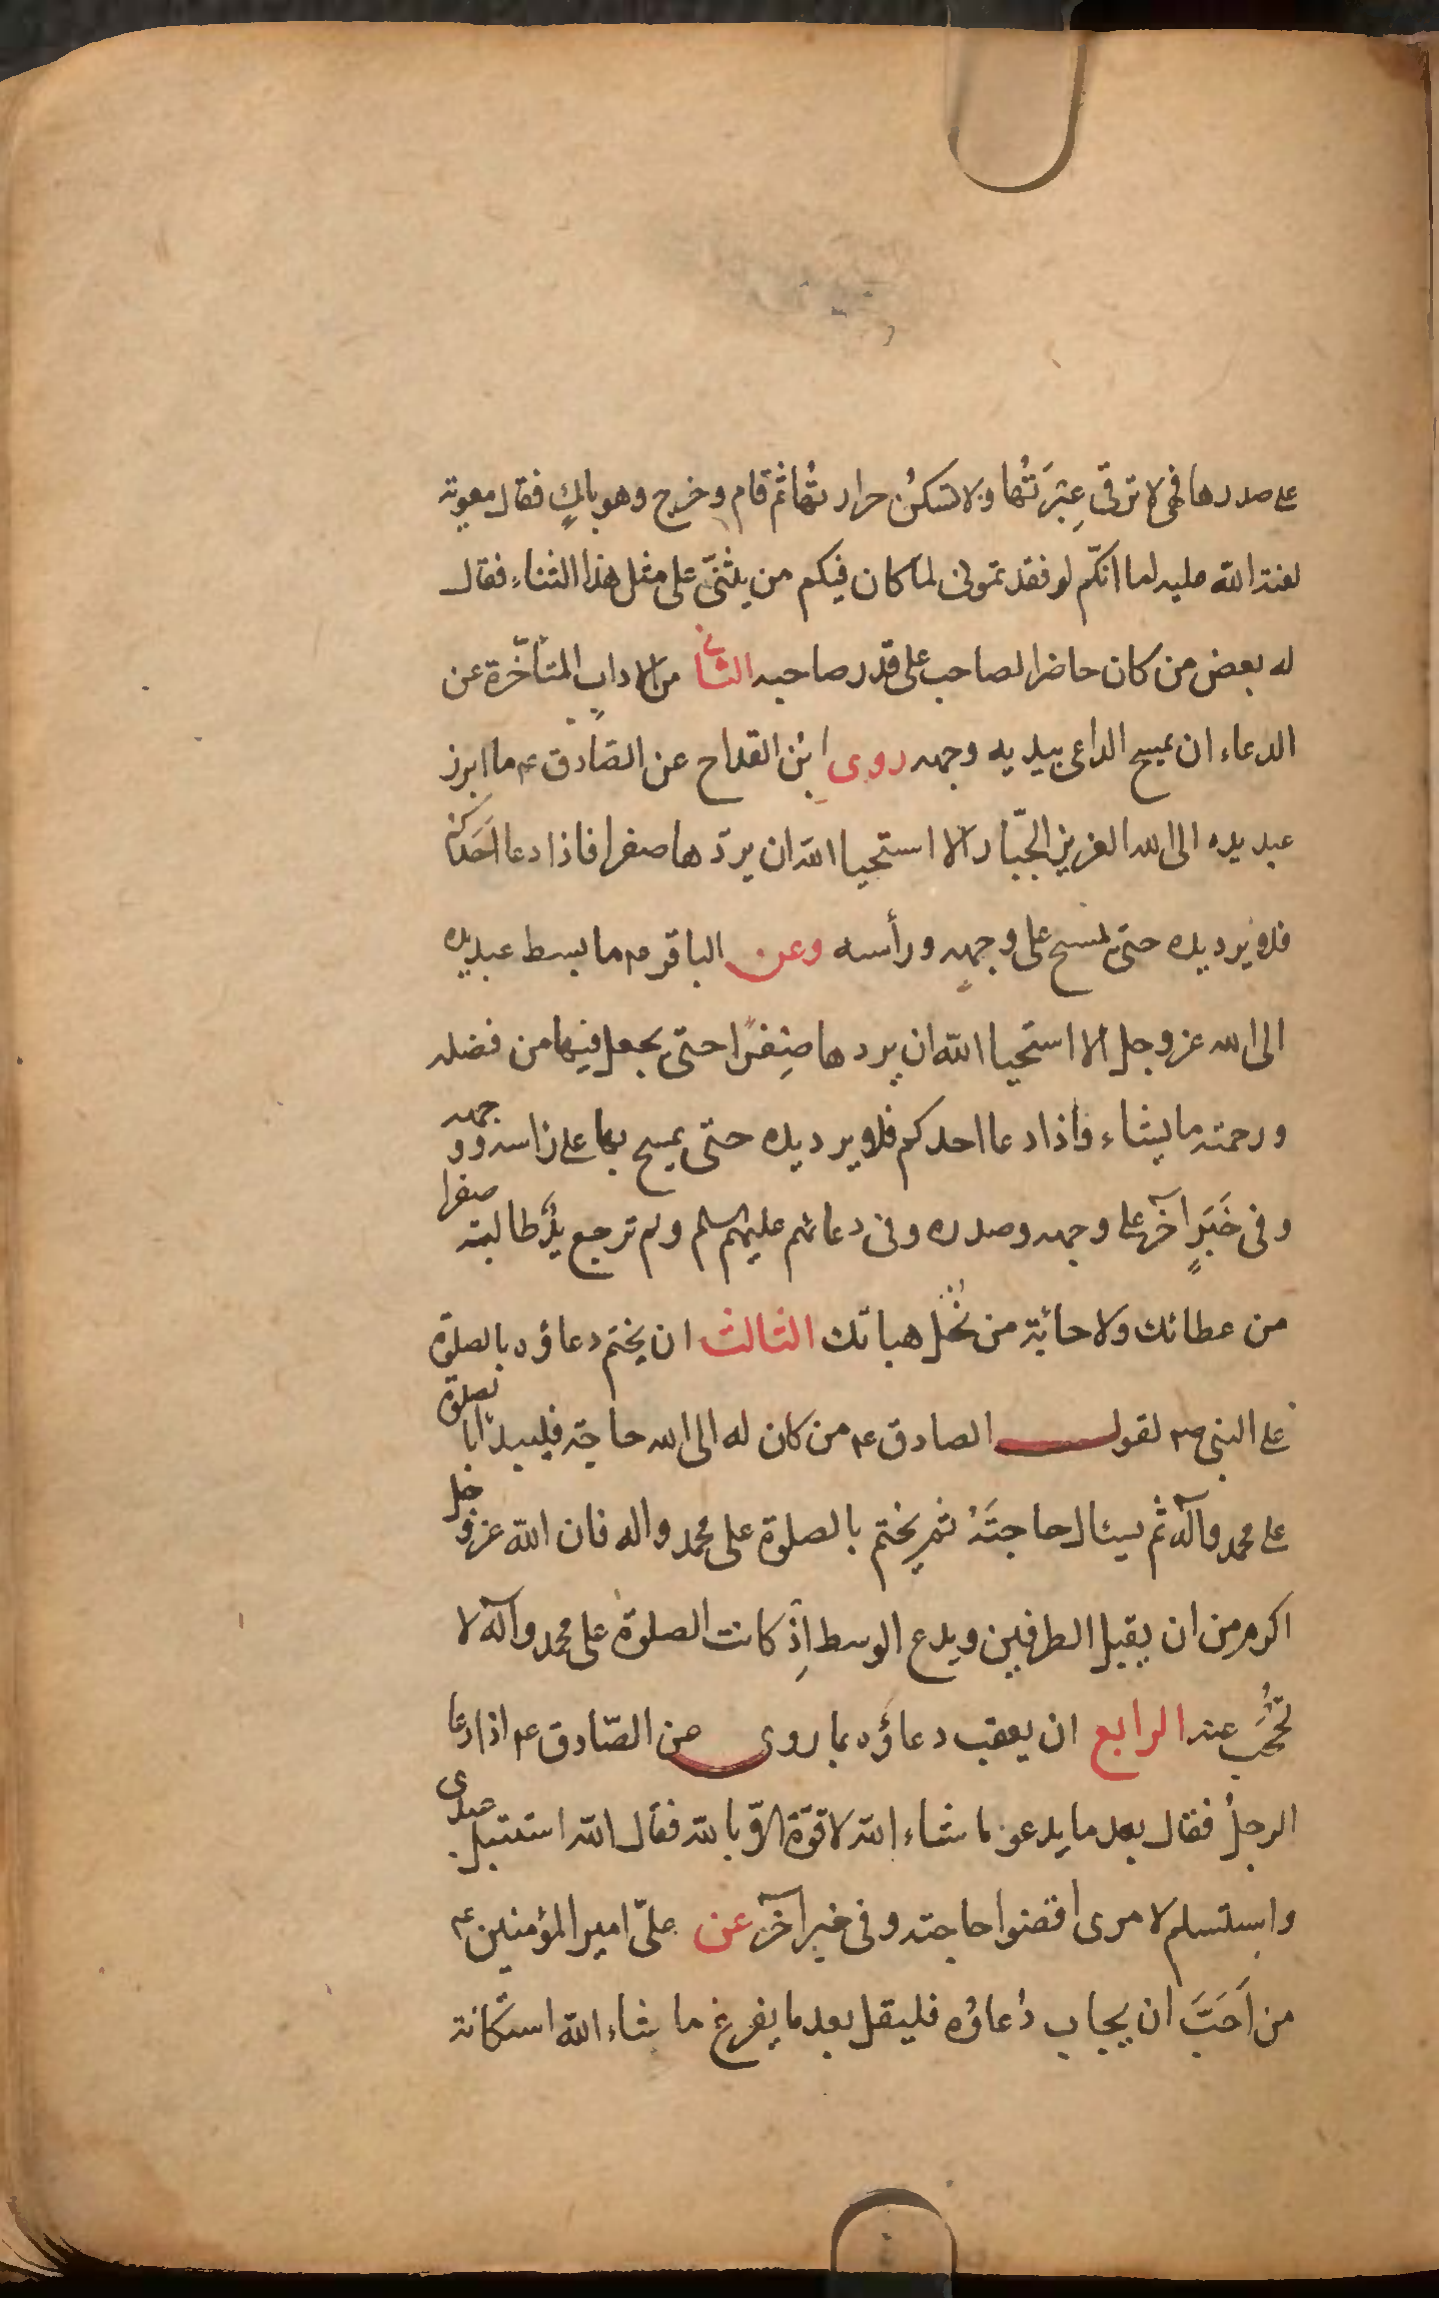 على صدرها فهى لا ترقى عِبْرَتُها ولا تسكنُ حرارتُها ثم قام وخرج وهو باكٍ فقال معوية
لعنة الله عليه اما انكّم لو فقدتمونى لما كان فيكم من يثنىّ على مثل هذا الثناء فقال
له بعض من كان حاضرا الصاحب على قدر صاحبه الثانى من الاداب المتأخّرة عن
الدعاء ان يمسح الداعى بيديه وجهه روى ابن القداح عن الصّادق ع ما ابرز
عبد يده الى الله العزيز الجبّار الا استحيا الله ان يردّها صفرا فاذا دعا احَدكم
فلا يرد يده حتى يمسح على وجهه ورأسه وعن الباقر ع ما بسط عبد يده
الى الله عز وجل الا استحيا الله ان يردها صِفرًا حتى يجعل فيها من فضله
ورحمته ما يشاء فاذا دعا احدكم فلا يرد يده حتّى يمسح بها على راسه ووجهه
وفى خَبَرٍ آخر على وجهه وصدره وفى دعائهم عليهم السلم ولم ترجع يدٌ طالبة صفرا
من عطائك ولا خائبة من نُحْل هباتك الثالث ان يختم دعاؤه بالصلوة
على النبى ص لقول الصادق ع من كان له الى الله حاجة فليبدأ بالصلوة
على محمد وآله ثم يسئال حاجتَهُ ثم يختم بالصلوة على محمد واله فان الله عز وجل
اكرم من ان يقبل الطرفين ويدع الوسط اِذ كانت الصلوة على محمد وآله لا
تُحْجَبُ عنه الرابع ان يعقب دعاؤه بما روى عن الصّادق ع اذا دعا
الرجلُ فقال بعد ما يدعو ما شاء الله لا قوّة الاّ بالله فقال الله استبتل عبدى
واستسلم لامرى اقضوا حاجته وفى خبر آخر عن علىّ امير المؤمنين ع
من اَحَبَّ ان يجاب دُعاؤه فليقل بعد ما يفرغ ما شاء الله استكانة